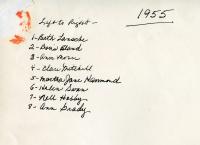 1955
Left to Right -
1- Beth
2- Doris Bland
3- Ann
4- Clara Mitchell
5- Martha Jane Hammond
6- Helen Swan
7- Nell Hobby
8- Ann Grady